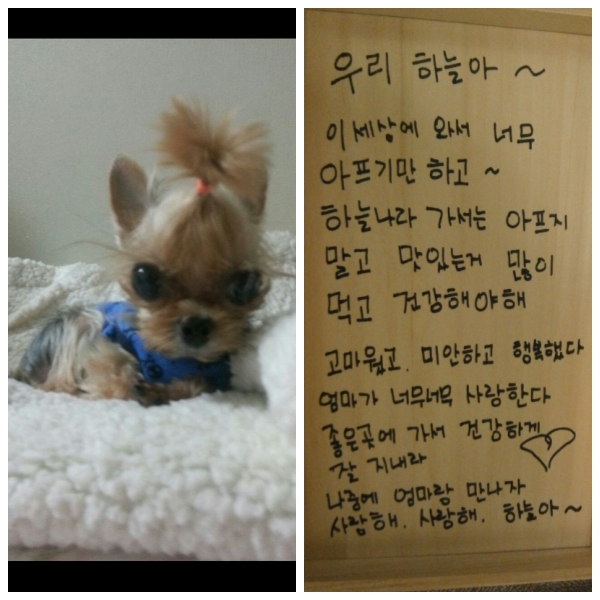 우리 하늘아 ~
이세상에 와서 너무
아프기만 하고 ~
하늘나라 가서는 아프지
말고 맛있는거 많이
먹고 건강해야해
고마웠고. 미안하고 행복했다
엄마가 너무너무 사랑한다
좋은곳에 가서 건강하게
잘 지내라
나중에 엄마랑 만나자
사랑해. 사랑해. 하늘아 ~